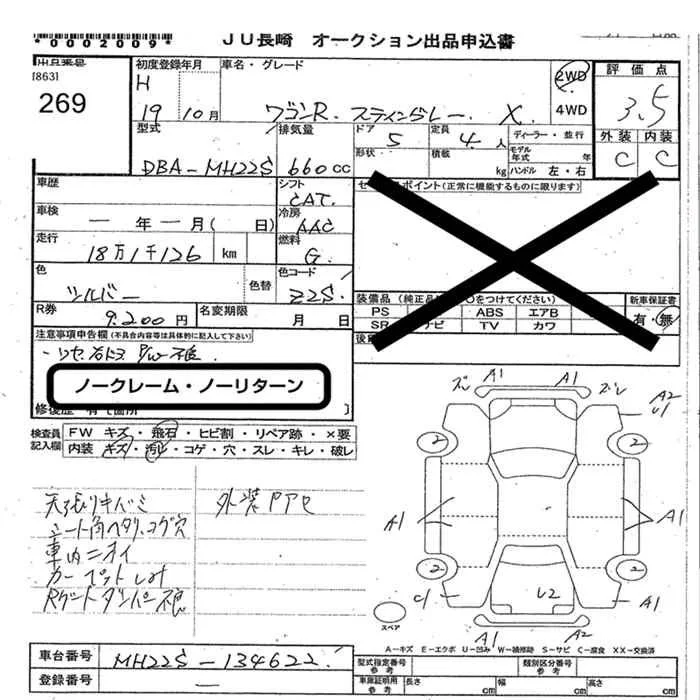 *0002009*
JU長崎 オークション出品申込書
出品番号 初度登録年月 車名・グレード
[863] H 2WD 評価点
269 19 10月 ワゴンR. スティングレー. X. 4WD 3.5
型式 排気量 ドア 5 定員 4 人 ディーラー・並行 外装 内装
DBA-MH22S 660cc 形状 積載 kg モデル年式 年 ハンドル 左・右 C C
車歴 シフト CAT. セールスポイント(正常に機能するものに限ります)
車検 ― 年 ― 月( 日) 冷房 AAC
走行 18万1千126 km 燃料 G.
色 シルバー 色替 色コード Z2S.
装備品 (純正品 をつけてください) 新車保証書
R券 9.200円 名変期限 月 日 PS ABS エアB 有・無
SR ナビ TV カワ
注意事項申告欄(不具合内容等は具体的に記入して下さい)
ノークレーム・ノーリターン
修復歴 有(箇所 )
検査員 FW キズ・飛石・ヒビ割・リペア跡・×要
記入欄 内装 キズ・汚レ・コゲ・穴・スレ・キレ・破レ
ズレ A1 A1 ズレ A2
U1
2 2
A1 A1
2 2
C1 U2 A1
スペア A1 A2
天張りキバミ 外装アアセ
シート角ヘタリ、コゲ穴
車内ニオイ
カーペットしみ
Rゲートダンパー不良
A-キズ E-エクボ U-凹み W-補修跡 S-サビ C-腐食 XX-交換済
車台番号 MH22S-134622. 型式指定番号 参考 類別区分番号 参考
登録番号 ― 車庫証明用 参考 長さ cm 幅 cm 高さ cm